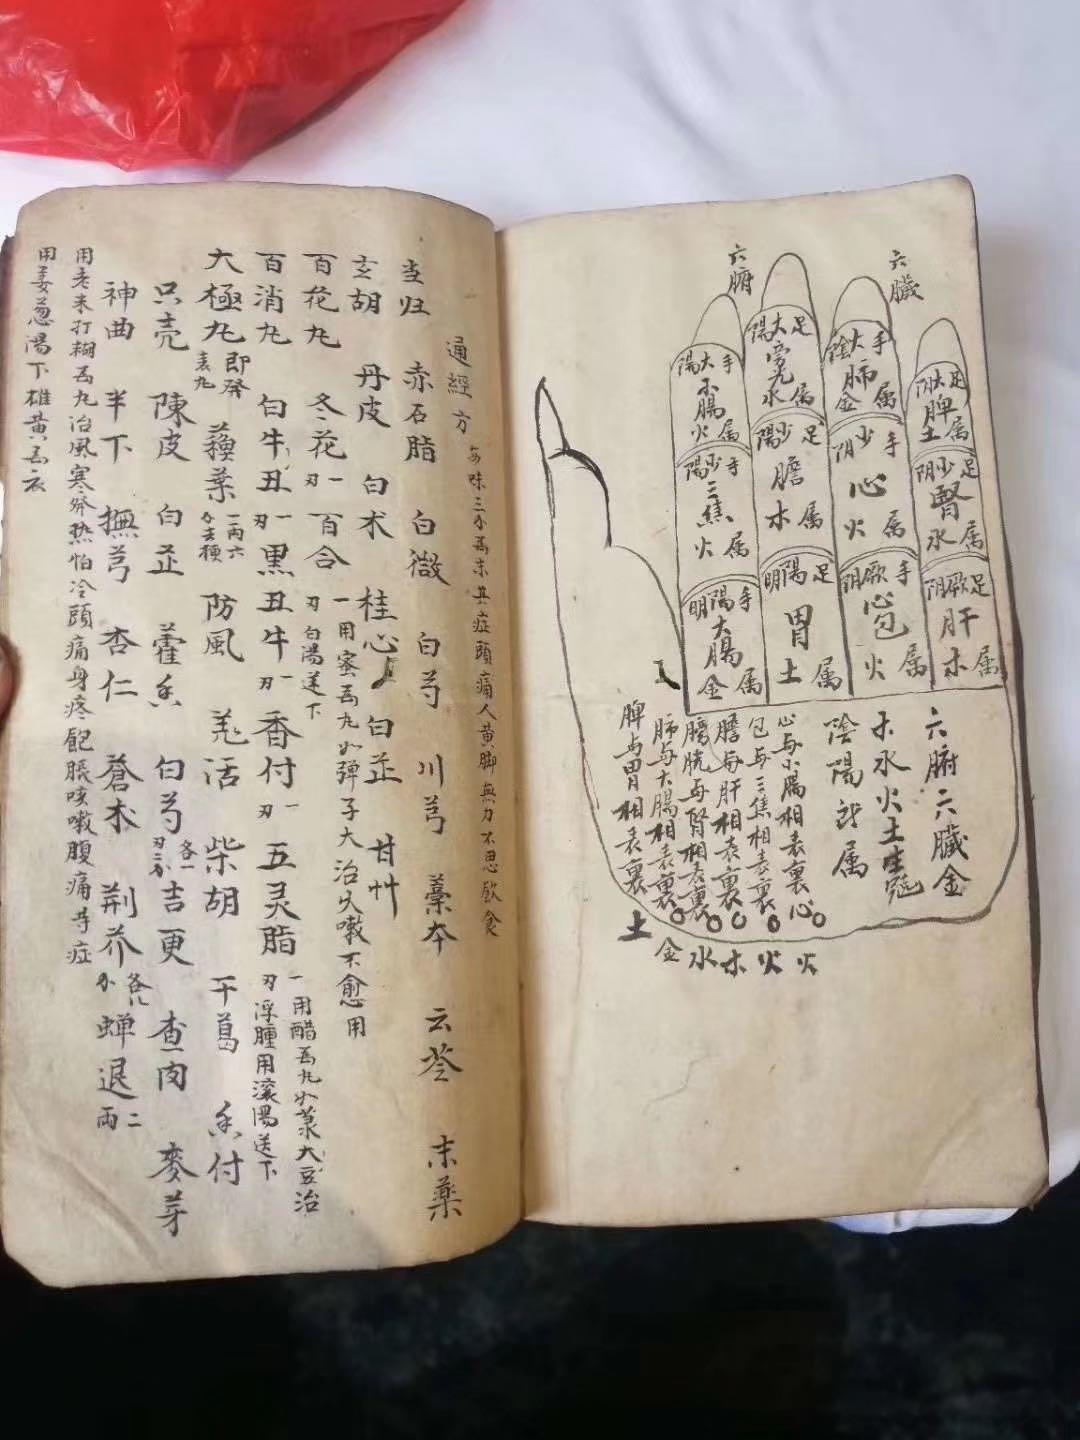 六臟
六腑
足太阴脾土属
足少阴腎水属
足厥阴肝木属
手太陰肺金属
手少阴心火属
手厥阴心包火属
足太陽旁光水属
足少陽膽木属
足陽明胃土属
手太陽小腸火属
手少陽三焦火属
手陽明大腸金属
六腑六臟金
木水火土生剋
陰陽所属
心与小腸相表裏心○火
包与三焦相表裏○火
膽与肝相表裏○木
膀胱与腎相表裏○水
肺与大腸相表裏○金
脾与胃相表裏土
通經方 每味三分為末其症頭痛人黄脚無力不思飲食
当归 赤石脂 白薇 白芍 川芎 藁本 云苓 末藥
玄胡 丹皮 白术 桂心 白芷 甘艸
百花丸 冬花一刃 百合一刃 用蜜為丸如弹子大治久嗽不愈用白湯送下
百消丸 白牛丑一刃 黑丑牛一刃 香付一刃 五灵脂一刃 用醋為丸如菉大豆治浮腫用滚湯送下
大極丸即發表丸 蘓葉一两六分去梗 防風 羌活 柴胡 干葛 香付
只壳 陳皮 白芷 藿香 白芍各一刃二分 吉更 查肉 麥芽
神曲 半下 撫芎 杏仁 蒼术 荆芥各八分 蝉退二两
用老米打糊為丸治風寒發热怕冷頭痛身疼飽脹咳嗽腹痛等症
用姜葱湯下雄黄為衣